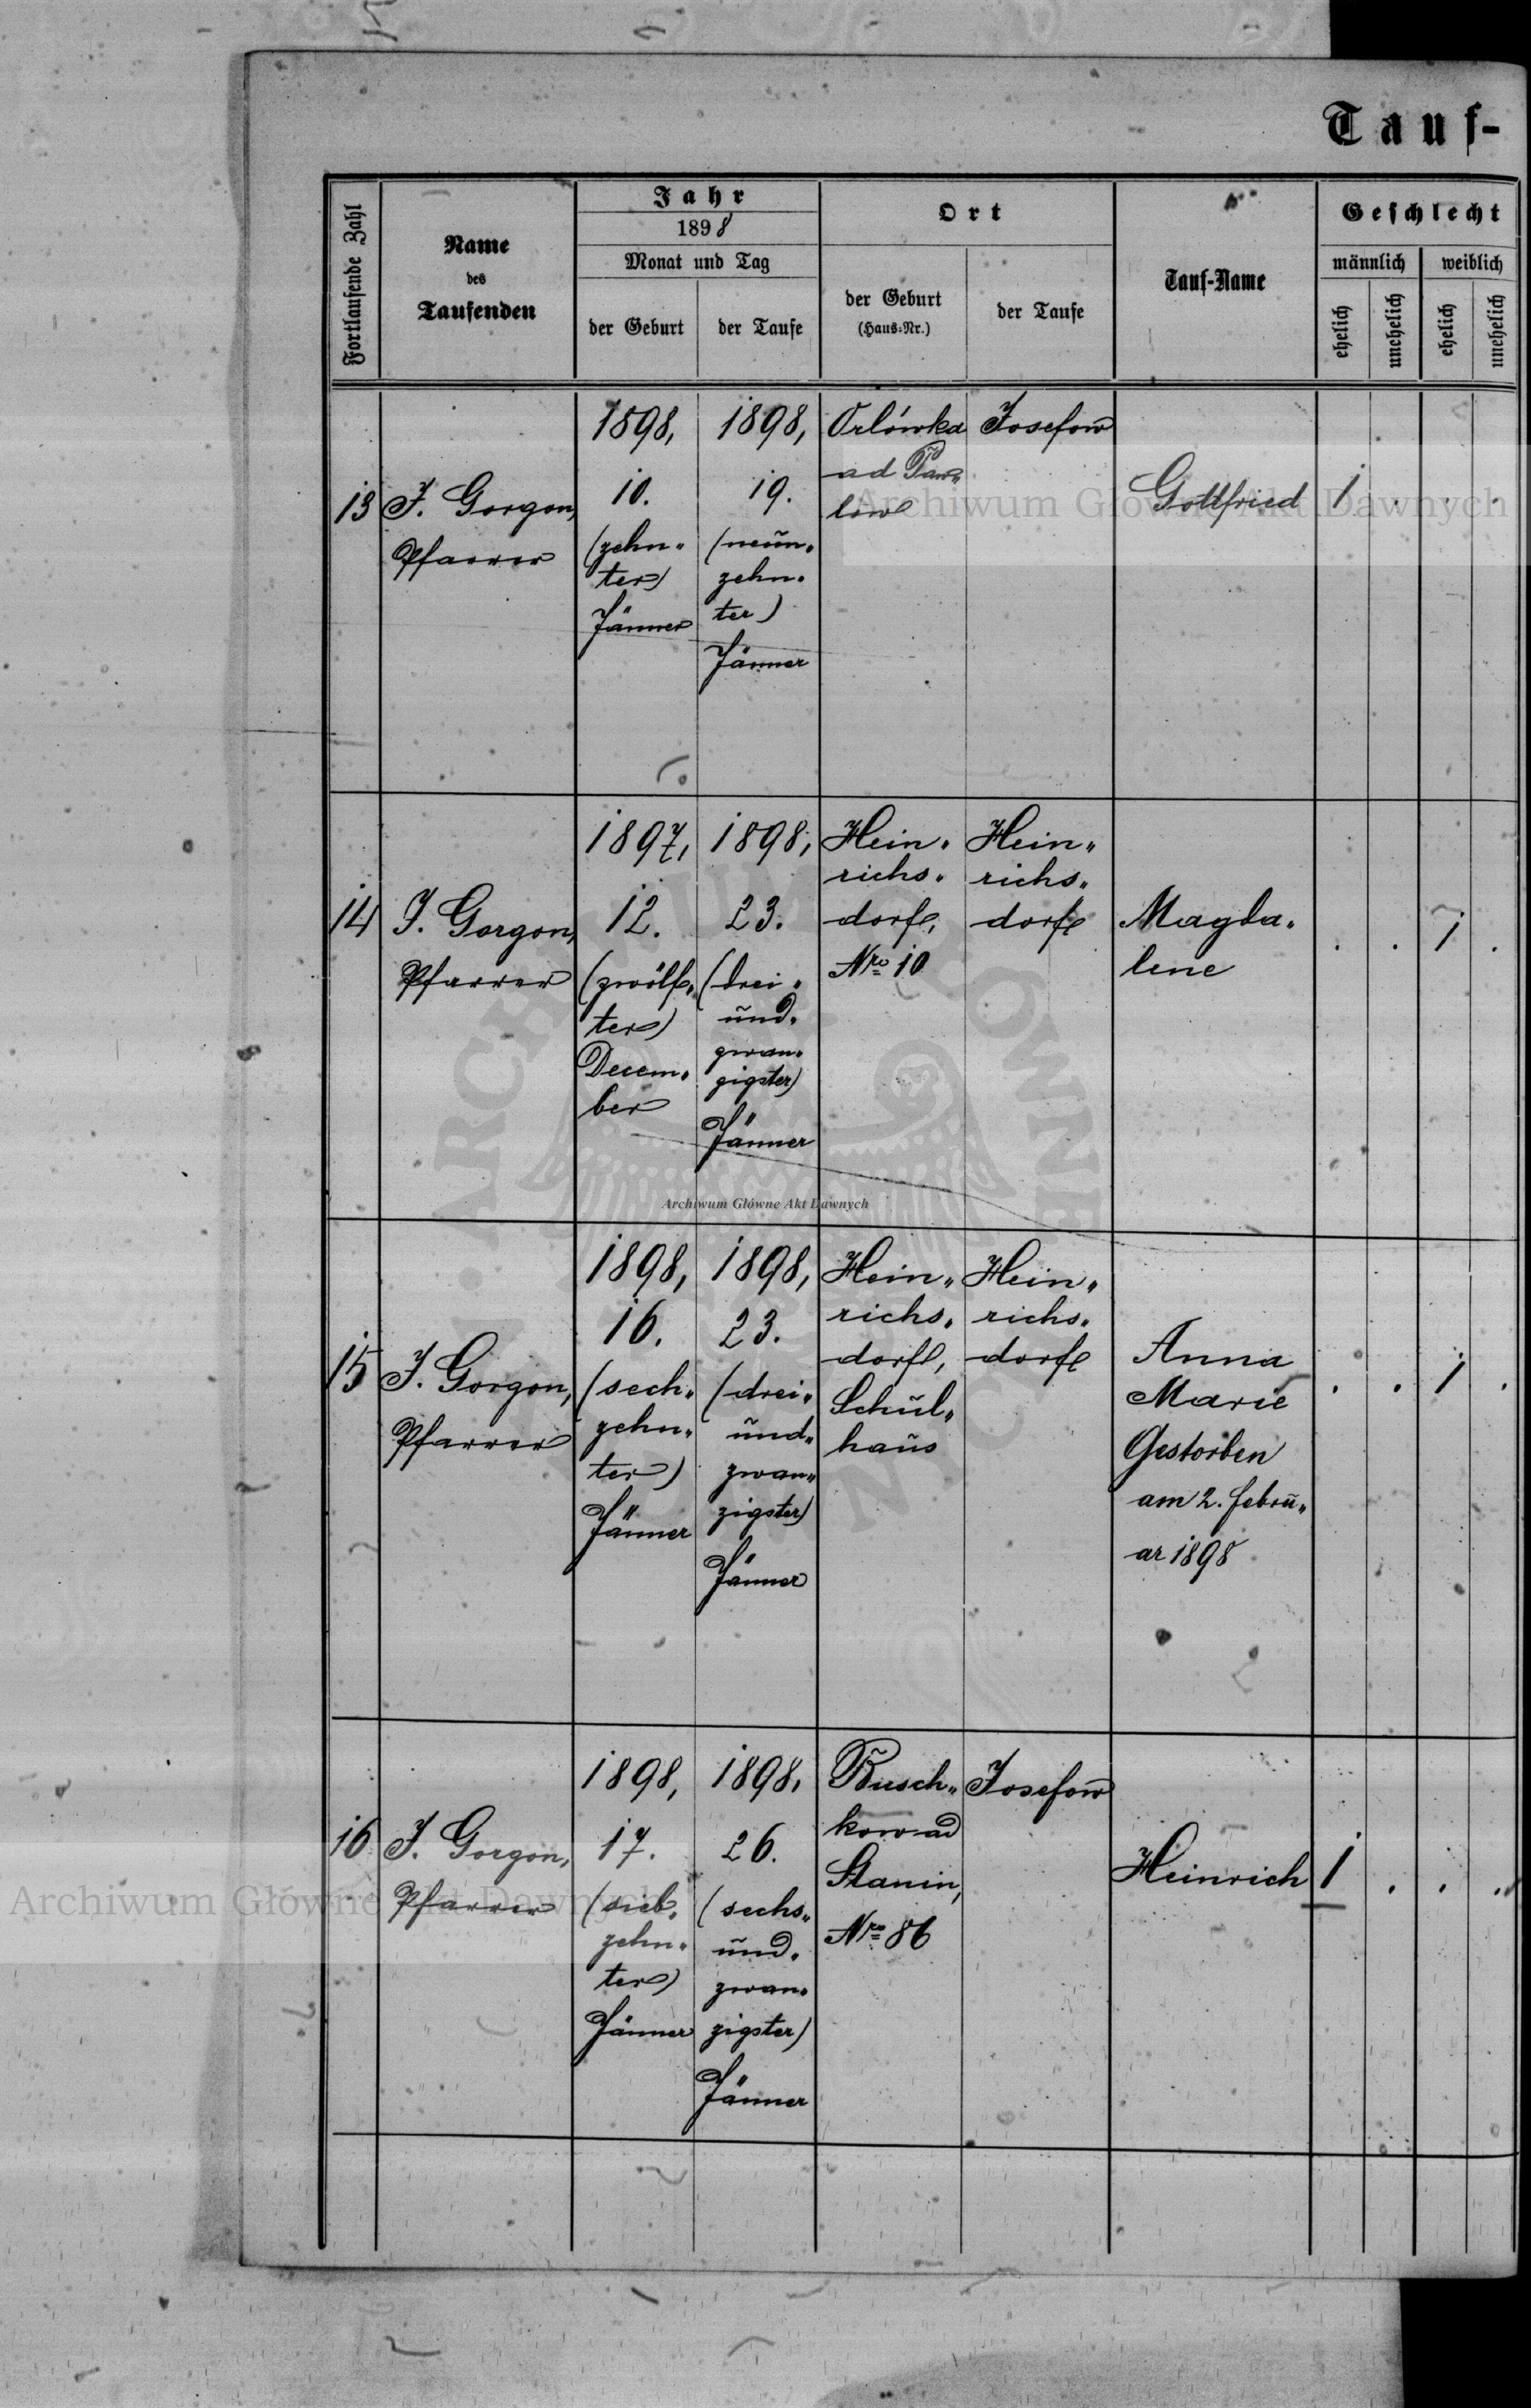 Tauf-
Fortlaufende Zahl
Name
des
Taufenden
Jahr
1898
Monat und Tag
der Geburt
der Taufe
Ort
der Geburt
(Haus-Nr.)
der Taufe
Tauf-Name
Geschlecht
männlich
weiblich
ehelich
unehelich
ehelich
unehelich
13
J. Gorgon,
Pfarrer
1898,
10.
(zehn-
ter)
Jänner
1898,
19.
(neun-
zehn-
ter)
Jänner
Orlówka
ad Paw-
low
Josefow
Gottfried
1 . . .
14
J. Gorgon,
Pfarrer
1897,
12.
(zwölf-
ter)
Decem-
ber
1898,
23.
(drei-
und-
zwan-
zigster)
Jänner
Hein-
richs-
dorf,
Nro 10
Hein-
richs-
dorf
Magda-
lene
. . 1 .
15
J. Gorgon,
Pfarrer
1898,
16.
(sech-
zehn-
ter)
Jänner
1898,
23.
(drei-
und-
zwan-
zigster)
Jänner
Hein-
richs-
dorf,
Schul-
haus
Hein-
richs-
dorf
Anna
Marie
Gestorben
am 2. Febru-
ar 1898
. . 1 .
16
J. Gorgon,
Pfarrer
1898,
17.
(sieb-
zehn-
ter)
Jänner
1898,
26.
(sechs-
und-
zwan-
zigster)
Jänner
Busch-
kow ad
Stanin,
Nro 86
Josefow
Heinrich
1 . . .
Archiwum Główne Akt Dawnych
Archiwum Główne Akt Dawnych
Archiwum Główne Akt Dawnych